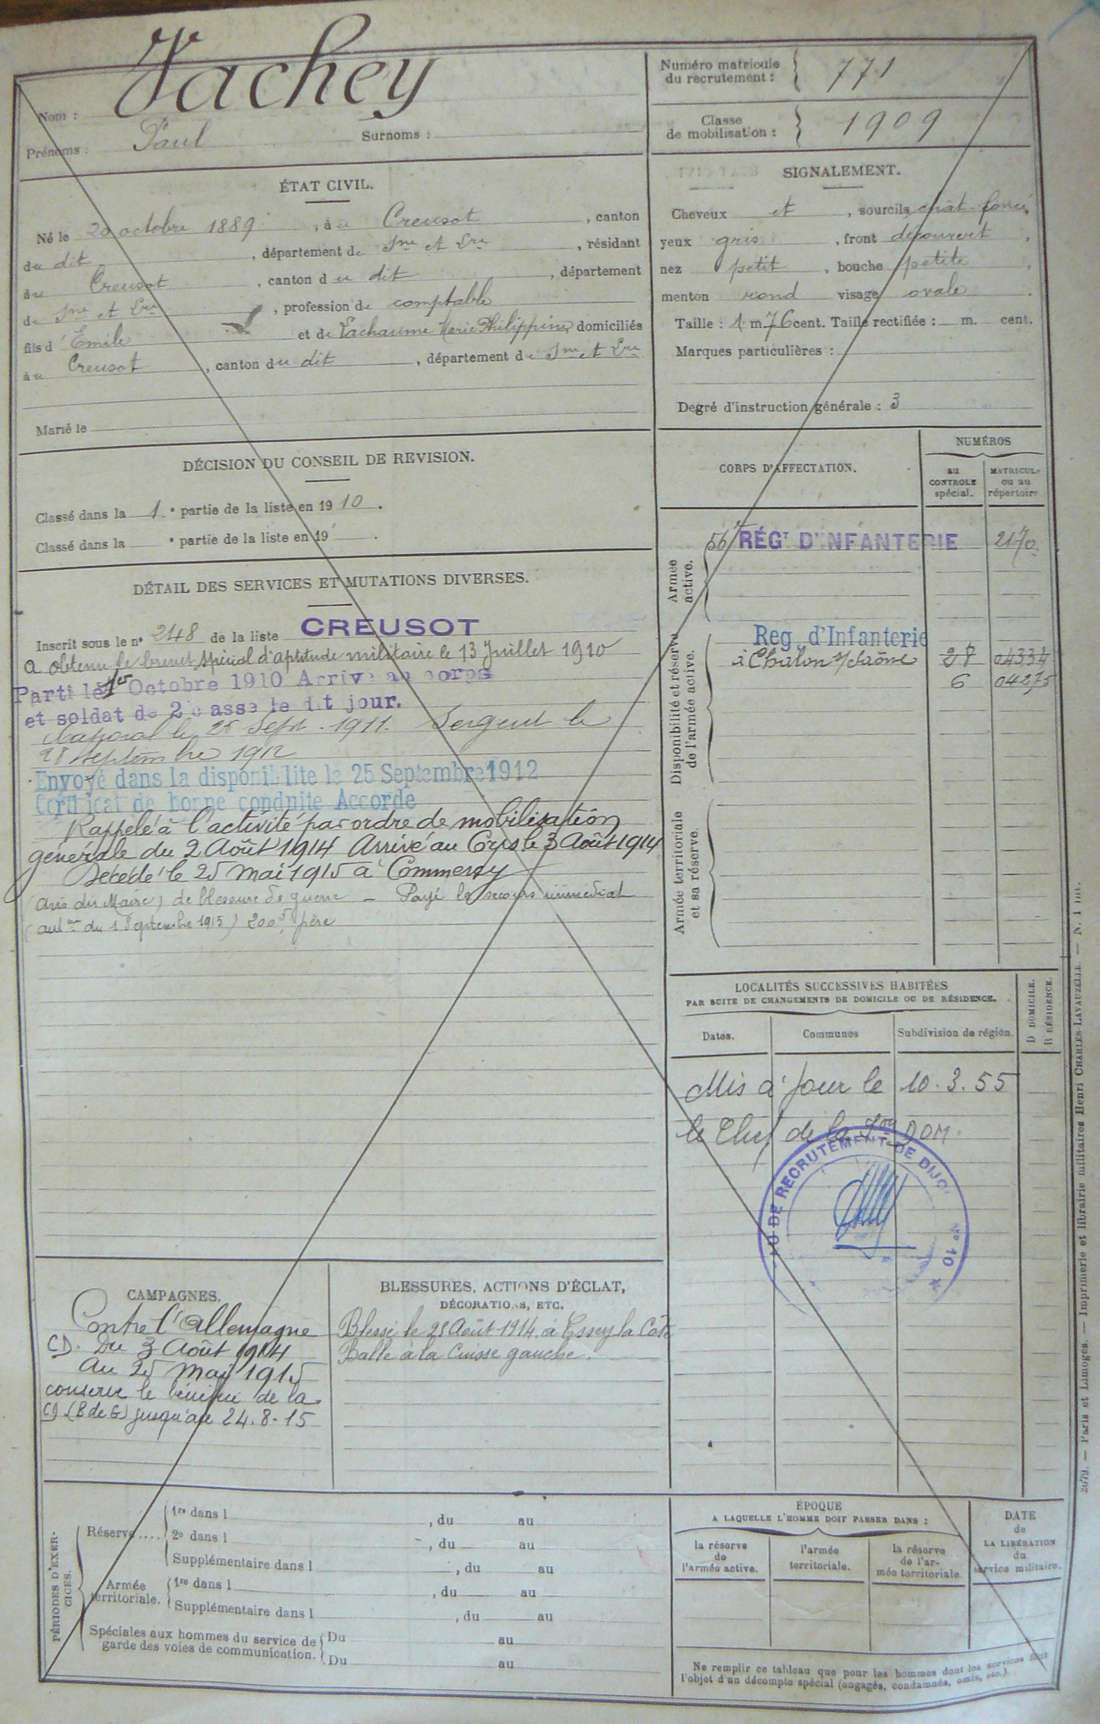 Nom : Vachey
Prénoms : Paul Surnoms :
Numéro matricule du recrutement : 771
Classe de mobilisation : 1909
ÉTAT CIVIL.
Né le 20 octobre 1889, à u Creusot, canton
du dit, département de Sne et Lre, résidant
à u Creusot, canton du dit, département
de Sne et Lre, profession de comptable
fils d'Emile et de Lachaume Marie Philippine domiciliés
à u Creusot, canton du dit, département de Sne et Lre
Marié le
SIGNALEMENT.
Cheveux et, sourcils chât. foncé,
yeux gris, front découvert,
nez petit, bouche petite,
menton rond visage ovale.
Taille : 1 m 76 cent. Taille rectifiée : m. cent.
Marques particulières :
Degré d'instruction générale : 3
DÉCISION DU CONSEIL DE REVISION.
Classé dans la 1e partie de la liste en 1910.
Classé dans la e partie de la liste en 19 .
DÉTAIL DES SERVICES ET MUTATIONS DIVERSES.
Inscrit sous le no 248 de la liste CREUSOT
A obtenu le brevet spécial d'aptitude militaire le 13 Juillet 1910
Parti le 1er Octobre 1910 Arrivé au corps
et soldat de 2e classe le dit jour.
Caporal le 25 Sept. 1911. Sergent le
28 septembre 1912
Envoyé dans la disponibilité le 25 Septembre 1912
Certificat de bonne conduite Accordé
Rappelé à l'activité par ordre de mobilisation
générale du 2 Août 1914 Arrivé au Corps le 3 Août 1914
Décédé le 25 mai 1915 à Commercy
(avis du Maire) de blessure de guerre – Payé le secours immédiat
(auton du 1 Septembre 1915) 200f père
CORPS D'AFFECTATION.
NUMÉROS
au CONTROLE spécial.
MATRICULE ou au répertoire
Armée active.
56e RÉGT D'INFANTERIE 2170
Disponibilité et réserve de l'armée active.
Reg. d'Infanterie
à Chalon s/ Saône 27 04334
6 04275
Armée territoriale et sa réserve.
LOCALITÉS SUCCESSIVES HABITÉES
PAR SUITE DE CHANGEMENTS DE DOMICILE OU DE RÉSIDENCE.
Dates. Communes Subdivision de région.
D DOMICILE.
R RÉSIDENCE.
Mis à jour le 10.3.55
le Chef de la Son DOM.
AU DE RECRUTEMENT DE DIJO No 10
CAMPAGNES.
Contre l'Allemagne
CD. Du 3 Août 1914
Au 25 Mai 1915
conserve le bénéfice de la
CD (B de G) jusqu'au 24.8.15
BLESSURES, ACTIONS D'ÉCLAT,
DÉCORATIONS, ETC.
Blessé le 25 Août 1914 à Essey la Côte
Balle à la Cuisse gauche.
PÉRIODES D'EXERCICES.
Réserve....
1re dans l , du au
2e dans l , du au
Supplémentaire dans l , du au
Armée territoriale.
1re dans l , du au
Supplémentaire dans l , du au
Spéciales aux hommes du service de garde des voies de communication.
Du au
Du au
ÉPOQUE
A LAQUELLE L'HOMME DOIT PASSER DANS :
la réserve de l'armée active.
l'armée territoriale.
la réserve de l'armée territoriale.
DATE de LA LIBÉRATION du service militaire.
Ne remplir ce tableau que pour les hommes dont les services font
l'objet d'un décompte spécial (engagés, condamnés, omis, etc.).
2679. — Paris et Limoges. — Imprimerie et librairie militaires Henri CHARLES-LAVAUZELLE. — N. 1 int.